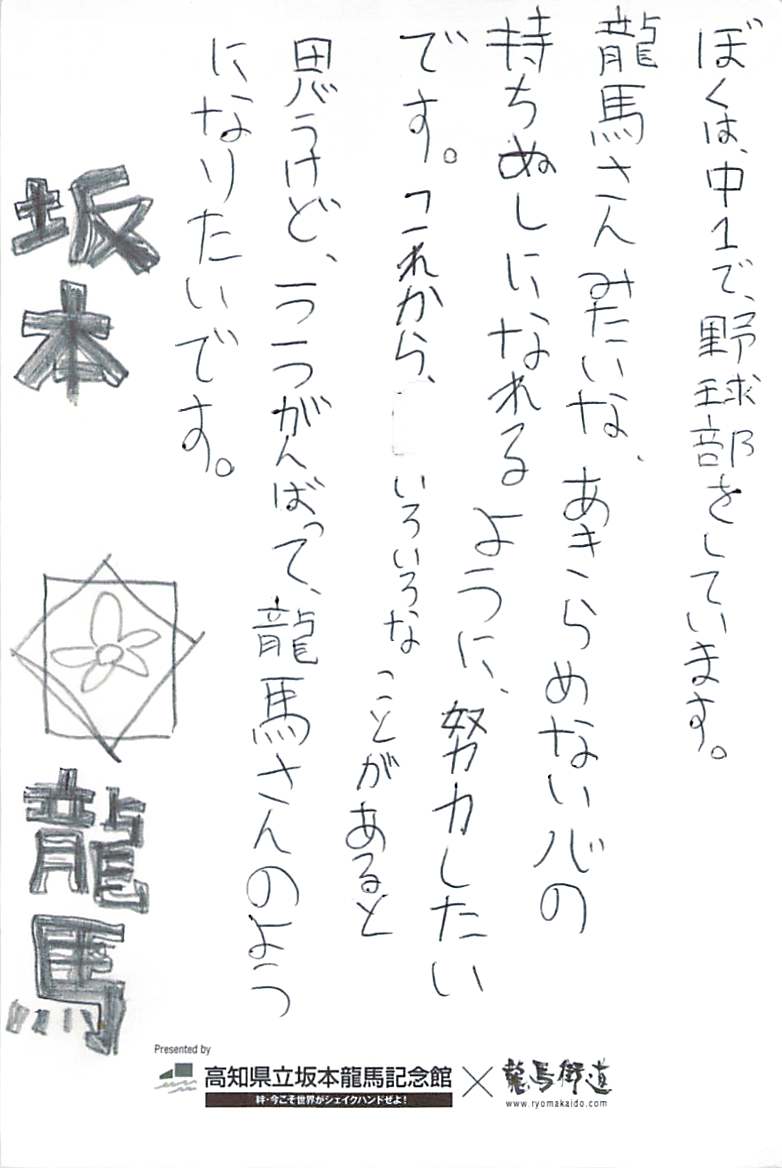 ぼくは、中1で、野球部をしています。
龍馬さんみたいな、あきらめない心の
持ちぬしになれるように、努力したい
です。これから、いろいろなことがあると
思うけど、がんばって、龍馬さんのよう
になりたいです。
坂本
龍馬
Presented by
高知県立坂本龍馬記念館
絆・今こそ世界がシェイクハンドせよ!
×
龍馬街道
www.ryomakaido.com